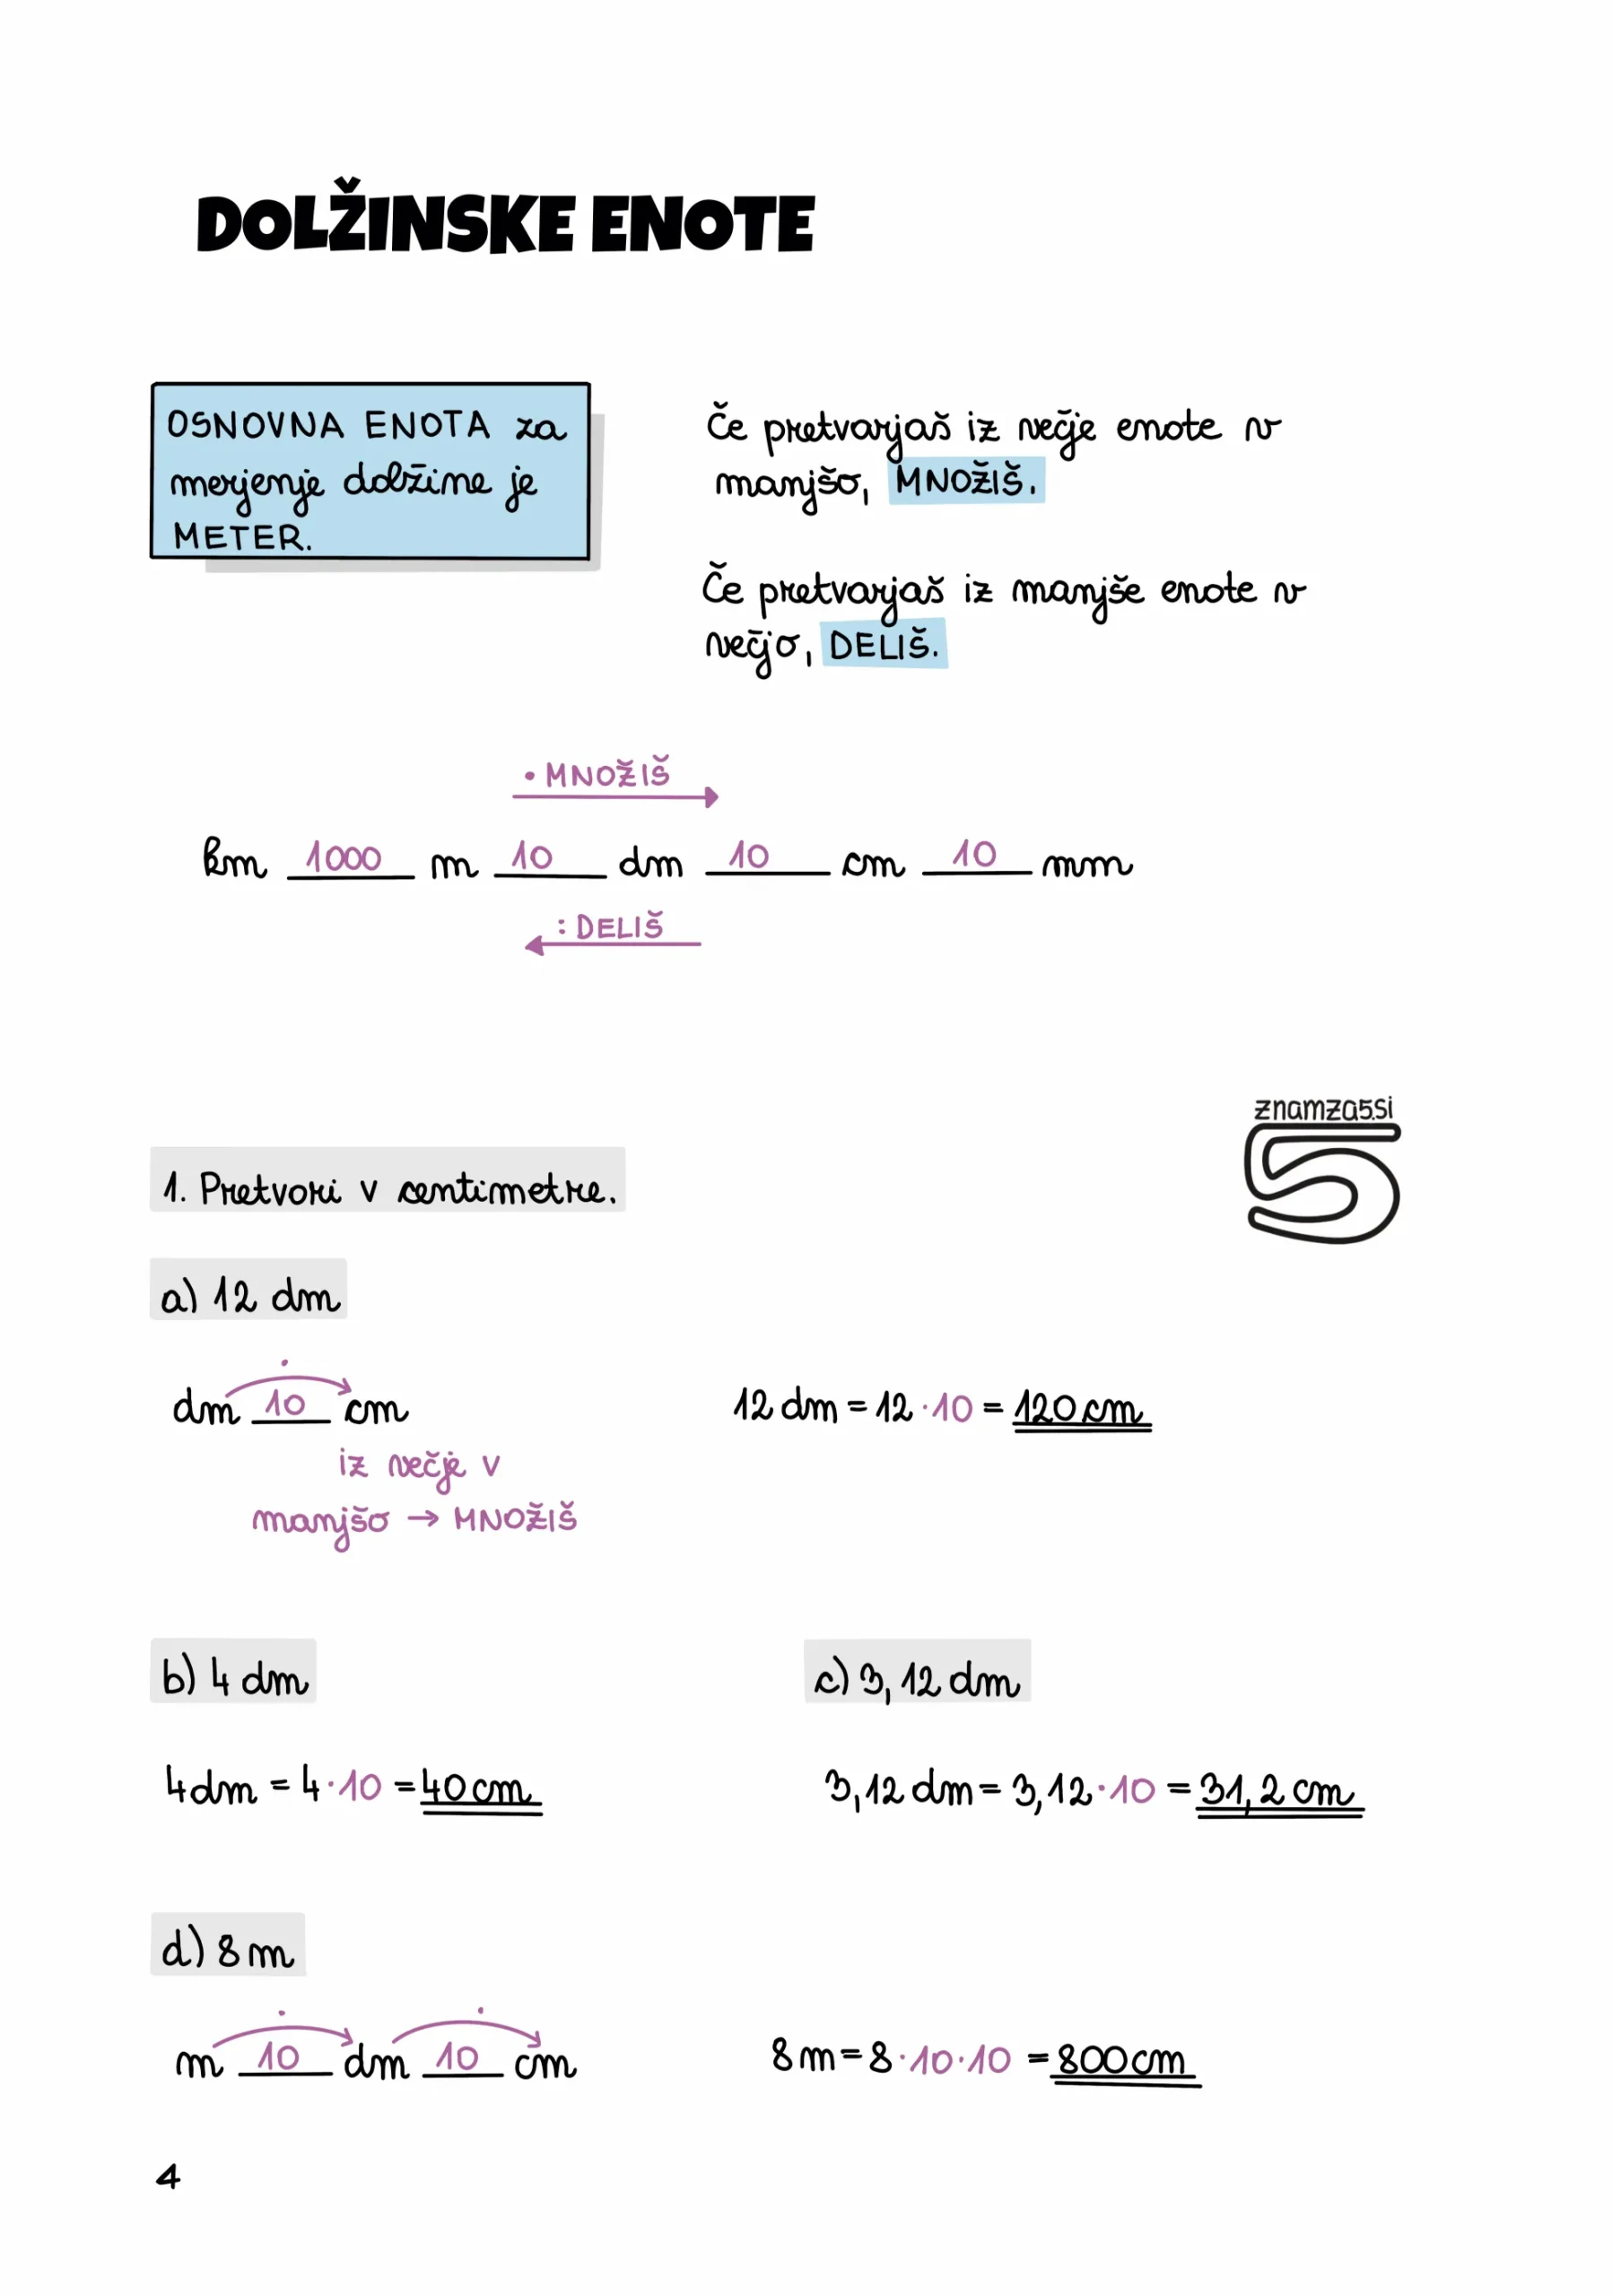 DOLŽINSKE ENOTE
OSNOVNA ENOTA za
merjenje dolžine je
METER.
Če pretvarjaš iz večje enote v
manjšo, MNOŽIŠ.
Če pretvarjaš iz manjše enote v
večjo, DELIŠ.
· MNOŽIŠ
km 1000 m 10 dm 10 cm 10 mm
: DELIŠ
znamza5.si
5
1. Pretvori v centimetre.
a) 12 dm
·
dm 10 cm
12 dm = 12 · 10 = 120 cm
iz večje v
manjšo → MNOŽIŠ
b) 4 dm
c) 3,12 dm
4 dm = 4 · 10 = 40 cm
3,12 dm = 3,12 · 10 = 31,2 cm
d) 8 m
· ·
m 10 dm 10 cm
8 m = 8 · 10 · 10 = 800 cm
4